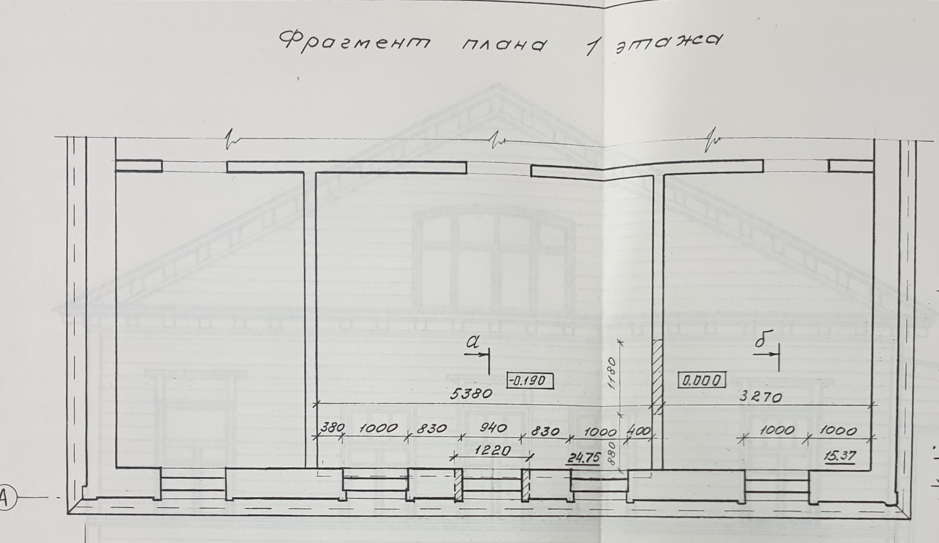 Фрагмент плана 1 этажа
а
б
1180
-0.190
0.000
5380
3270
380 1000 830 940 830 1000 400
1000 1000
880
1220
24.75
15.37
А